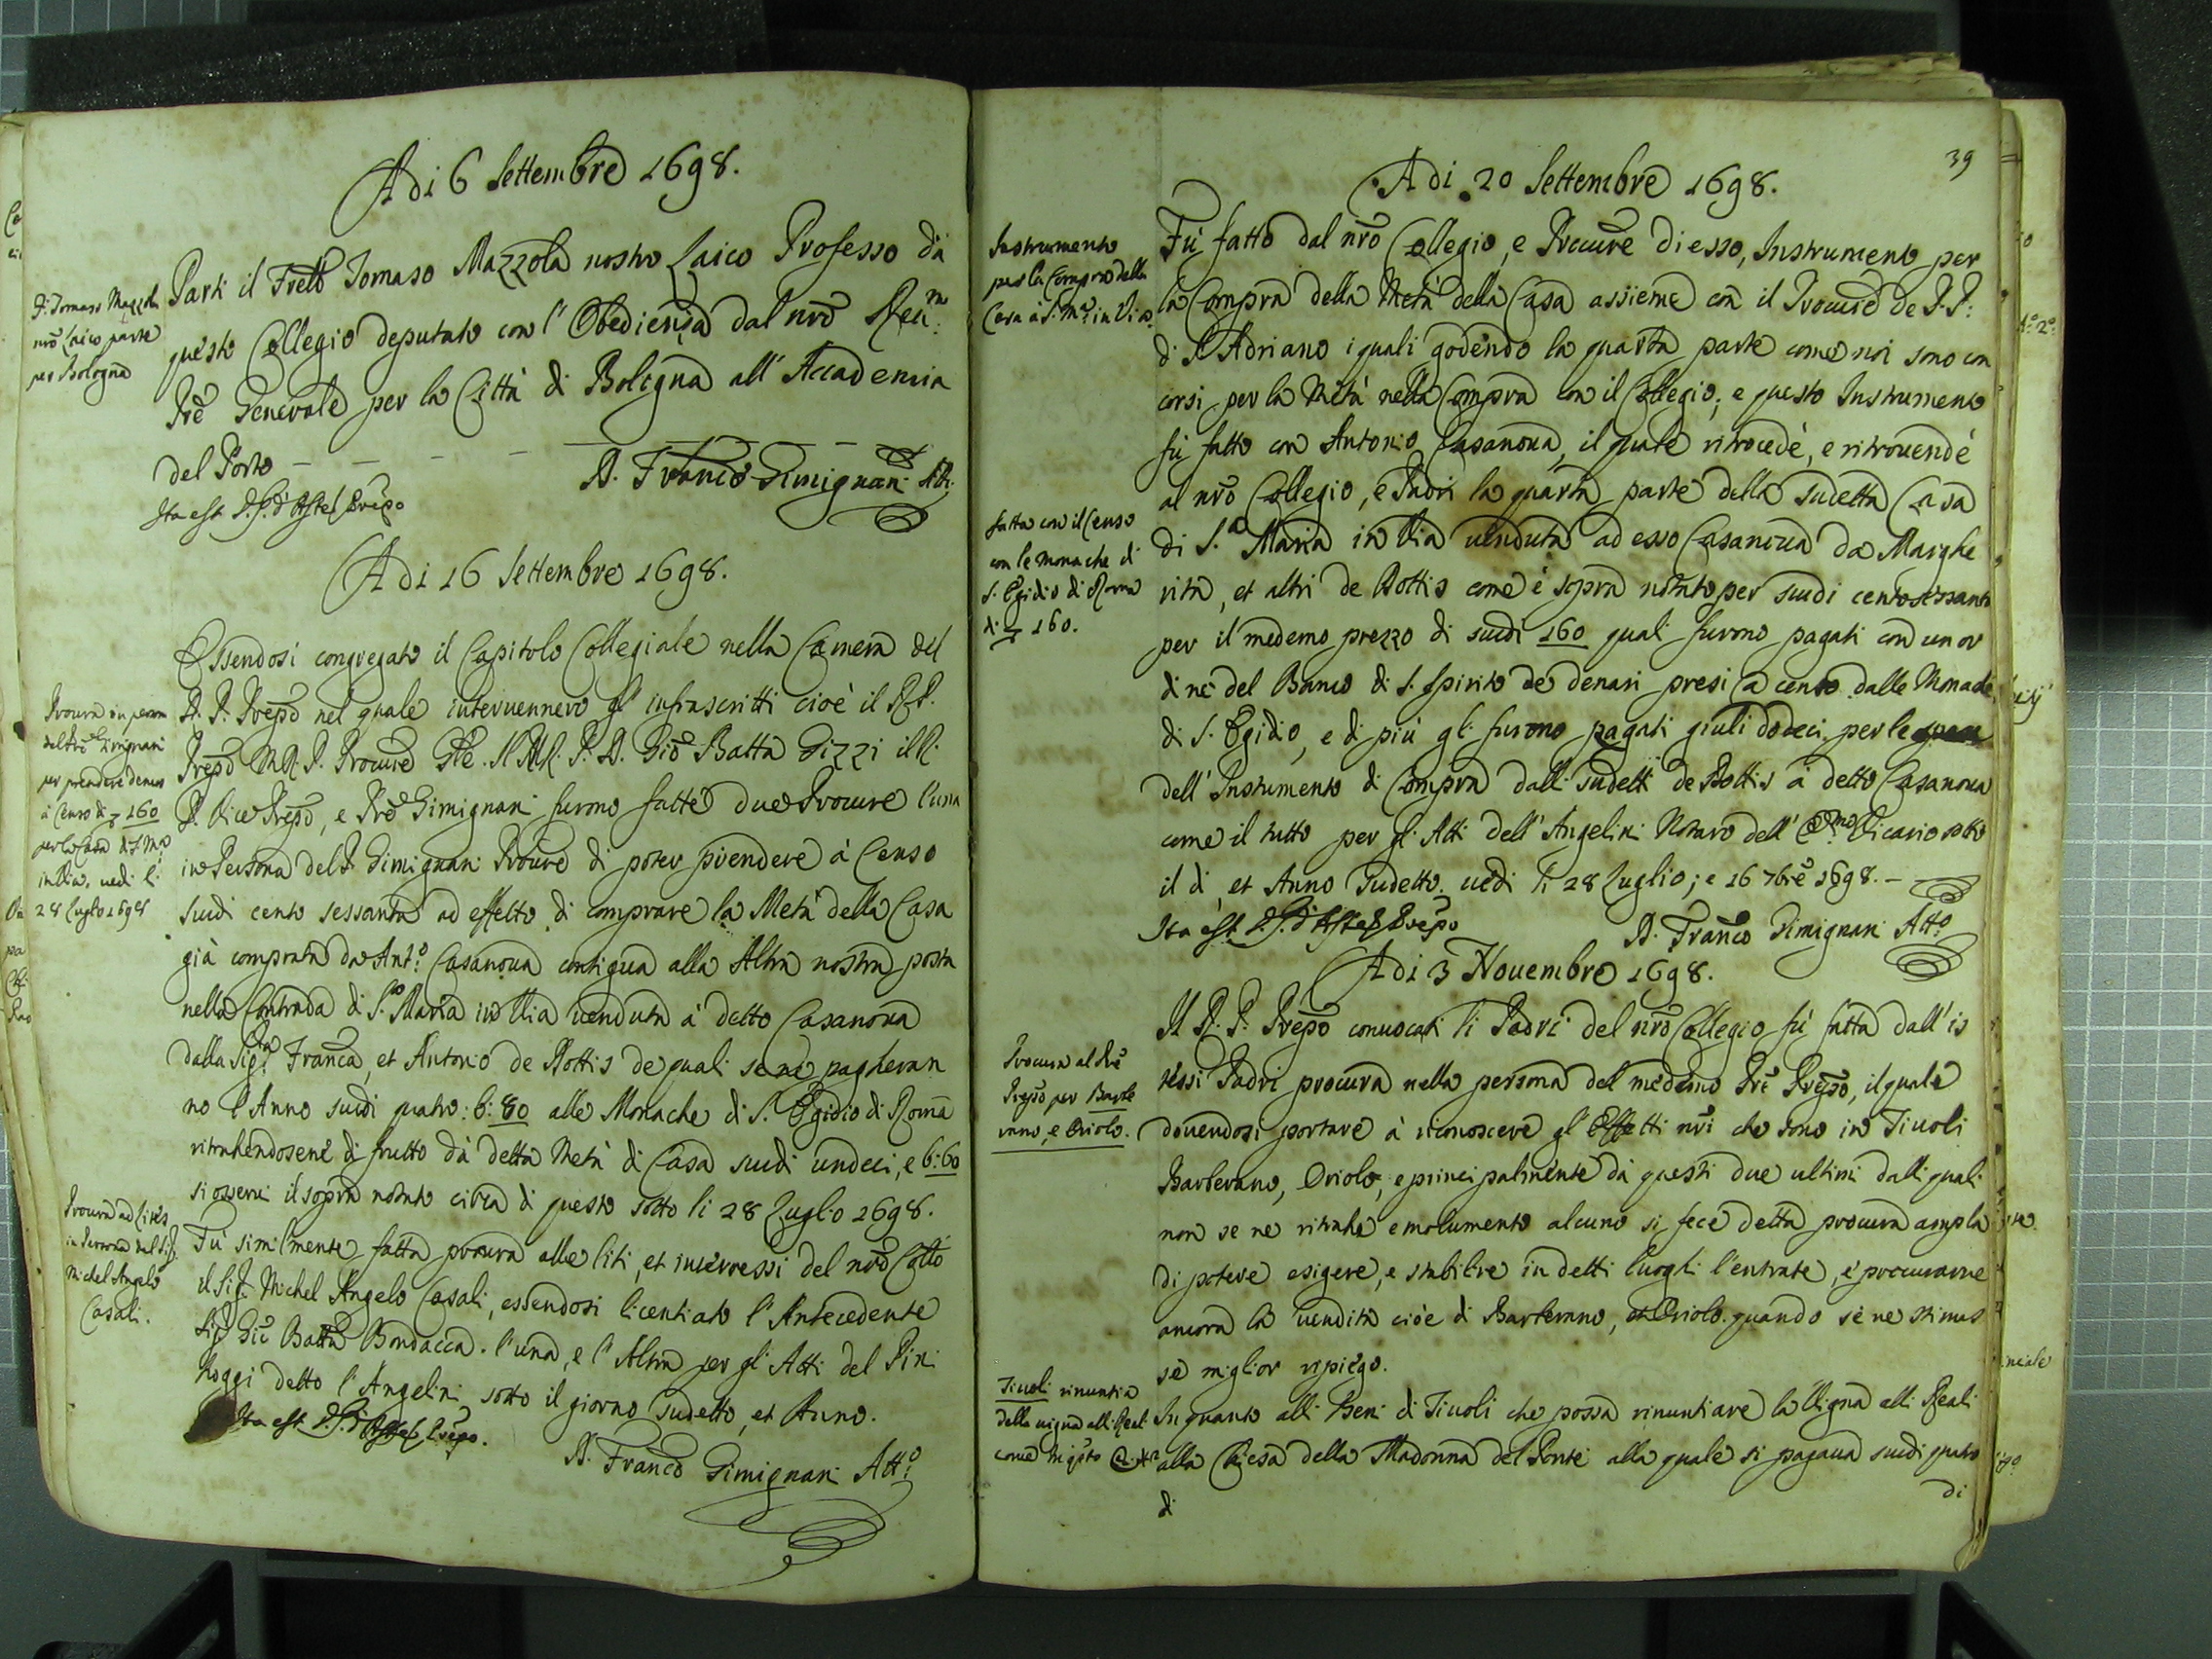 Adi 6 Settembre 1698.
F. Tomaso Mazzola
nrõ Laico parte
per Bologna
Parti il Frello Tomaso Mazzola nostro Laico Professo da
questo Collegio deputato con l'Obedienza dal nrõ Reu:mo
Prẽ Generale per la Città di Bologna all'Accademia
del Porto — — — — — — — —
D. Franco Gimignani Att.
Ita est D. G. d'Aste Prepo
Adi 16 Settembre 1698.
Procura in persona
del Prẽ Gimignani
per prendere denari
à Censo di 160
per la Casa di S. Ma
in Via. uedi li
28 Luglio 1698
Essendosi congregato il Capitolo Collegiale nella Camera del
R. P. Prepo nel quale interuennero gl'infrascritti cioè il R. P.
Prepo M. R. P. Procure Gle. Il M. R. P. D. Gio Batta Gizzi il R.
P. Vice Prepo, e Prẽ Gimignani furono fatte due Procure l'una
in Persona del P. Gimignani Procure di poter prendere à Censo
scudi cento sessanta ad effetto di comprare la Metà della Casa
già comprata da Ant.o Casanoua contigua alla Altra nostra posta
nella Contrada di S.ta Maria in Via uenduta à detto Casanoua
dalla Sig.ra Franca, et Antonio de Rottis de quali se ne pagheran
no l'Anno scudi quatro: b: 80 alle Monache di S. Egidio di Roma
ritrahendosene di frutto dà detta Metà di Casa scudi undeci, e b: 60
si osserui il sopra notato circa di questo sotto li 28 Luglio 1698.
Procura ad lites
in Persona del Sig.
Michel Angelo
Casali.
Fù similmente fatta procura alle liti, et interressi del nrõ Collo
il Sig. Michel Angelo Casali, essendosi licentiato l'Antecedente
Sig. Gio Batta Bondacca. l'una, e l'Altra per gli Atti del Pini
hoggi detto l'Angelini sotto il giorno sudetto, et Anno.
Ita est D. G. d'Aste Prepo.
D. Franco Gimignani Att.o
39
Adi 20 Settembre 1698.
Instrumento
per la Compra della
Casa à S. Ma in Via
Fù fatto dal nrõ Collegio, e Procure di esso, Instrumento per
la Compra della Metà della Casa assieme con il Procure de P.P:
di S. Adriano i quali godendo la quarta parte come noi sono con
corsi per la Metà nella Compra con il Collegio; e questo Instrumento
fù fatto con Antonio Casanoua, il quale ritrocedè, e ritrouendè
al nrõ Collegio, e Padri la quarta parte della sudetta Casa
fatta con il Censo
con le Monache di
S. Egidio di Roma
di 160.
di S.a Maria in Via uenduta ad esso Casanoua da Marghe
rita, et altri de Rottis come è sopra notato per scudi centosessanta
per il medemo prezzo di scudi 160 quali furono pagati con un or
dine del Banco di S. Spirito de denari presi a censo dalle Monache
di S. Egidio, e di più gli furono pagati giuli dodeci per le spese
dell'Instrumento di Compra dalli sudetti de Rottis à detto Casanoua
come il tutto per gli Atti dell'Angelini Notaro dell'Em:mo Vicario sotto
il dì, et Anno sudetto. uedi li 28 Luglio; e 16 7brẽ 1698. —
Ita est D. G. d'Aste Prepo
D. Franco Gimignani Att.o
Adi 3 Nouembre 1698.
Procura al Prẽ
Prepo per Barbe
rano, e Oriolo.
Il R. P. Prepo conuocati li Padri del nrõ Collegio fù fatta dall'is
tessi Padri procura nella persona del medemo Prẽ Prepo, il quale
douendosi portare à riconoscere gl'Effetti nrĩ che sono in Tiuoli
Barberano, Oriolo, e principalmente dà questi due ultimi dalli quali
non se ne ritrahe emolumento alcuno si fece detta procura ampla
di potere esigere, e stabilire in detti luoghi l'entrate, e procurarne
ancora la uendita cioè di Barberano, et Oriolo quando se ne stimas
se miglior ripiego.
Tiuoli rinuntia
della uigna alli Reali
In quanto alli Beni di Tiuoli che possa rinuntiare la Vigna alli Reali
alla Chiesa della Madonna del Ponte alla quale si pagaua scudi quatro
di
di